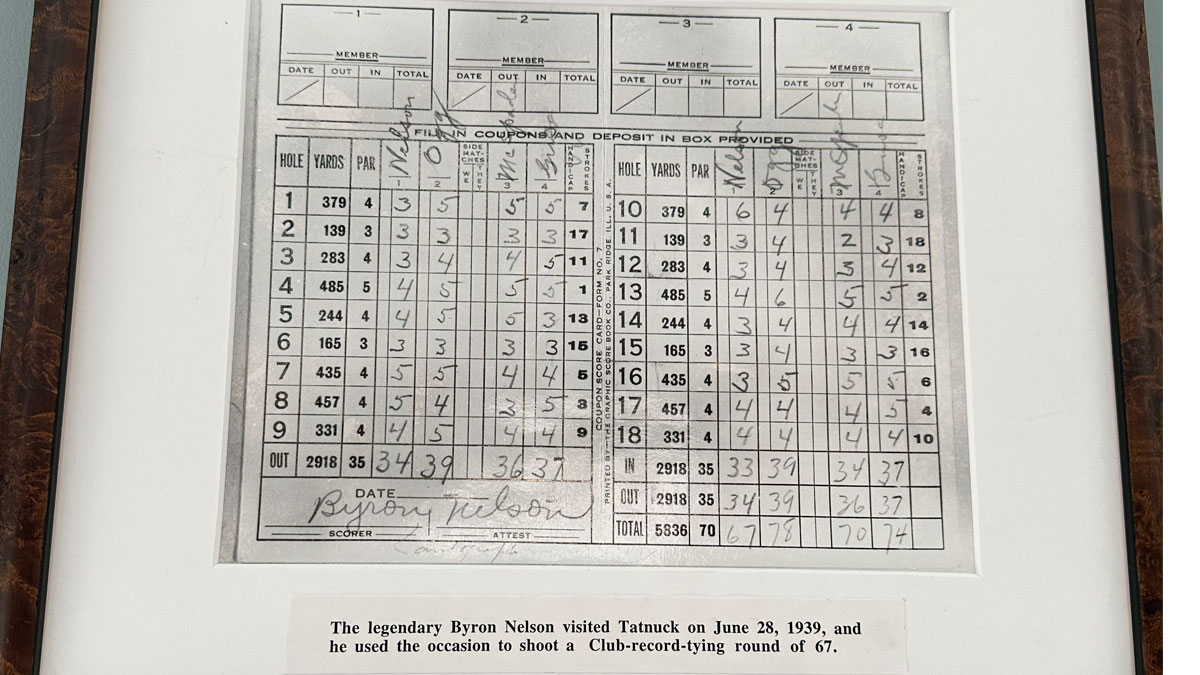 1 2 3 4
MEMBER MEMBER MEMBER MEMBER
DATE OUT IN TOTAL DATE OUT IN TOTAL DATE OUT IN TOTAL DATE OUT IN TOTAL
FILL IN COUPONS AND DEPOSIT IN BOX PROVIDED
HOLE YARDS PAR Nelson Ogg SIDE MATCHES WE THEY HANDICAP STROKES
1 2 3 4
1 379 4 3 5 5 5 7
2 139 3 3 3 3 3 17
3 283 4 3 4 4 5 11
4 485 5 4 5 5 5 1
5 244 4 4 5 5 3 13
6 165 3 3 3 3 3 15
7 435 4 5 5 4 4 5
8 457 4 5 4 3 5 3
9 331 4 4 5 4 4 9
OUT 2918 35 34 39 36 37
DATE
Byron Nelson
SCORER ATTEST
COUPON SCORE CARD—FORM NO. 7
PRINTED BY—THE GRAPHIC SCORE BOOK CO., PARK RIDGE, ILL., U. S. A.
HOLE YARDS PAR Nelson Ogg SIDE MATCHES WE THEY HANDICAP STROKES
1 2 3 4
10 379 4 6 4 4 4 8
11 139 3 3 4 2 3 18
12 283 4 3 4 3 4 12
13 485 5 4 6 5 5 2
14 244 4 3 4 4 4 14
15 165 3 3 4 3 3 16
16 435 4 3 5 5 5 6
17 457 4 4 4 4 5 4
18 331 4 4 4 4 4 10
IN 2918 35 33 39 34 37
OUT 2918 35 34 39 36 37
TOTAL 5836 70 67 78 70 74
The legendary Byron Nelson visited Tatnuck on June 28, 1939, and
he used the occasion to shoot a Club-record-tying round of 67.